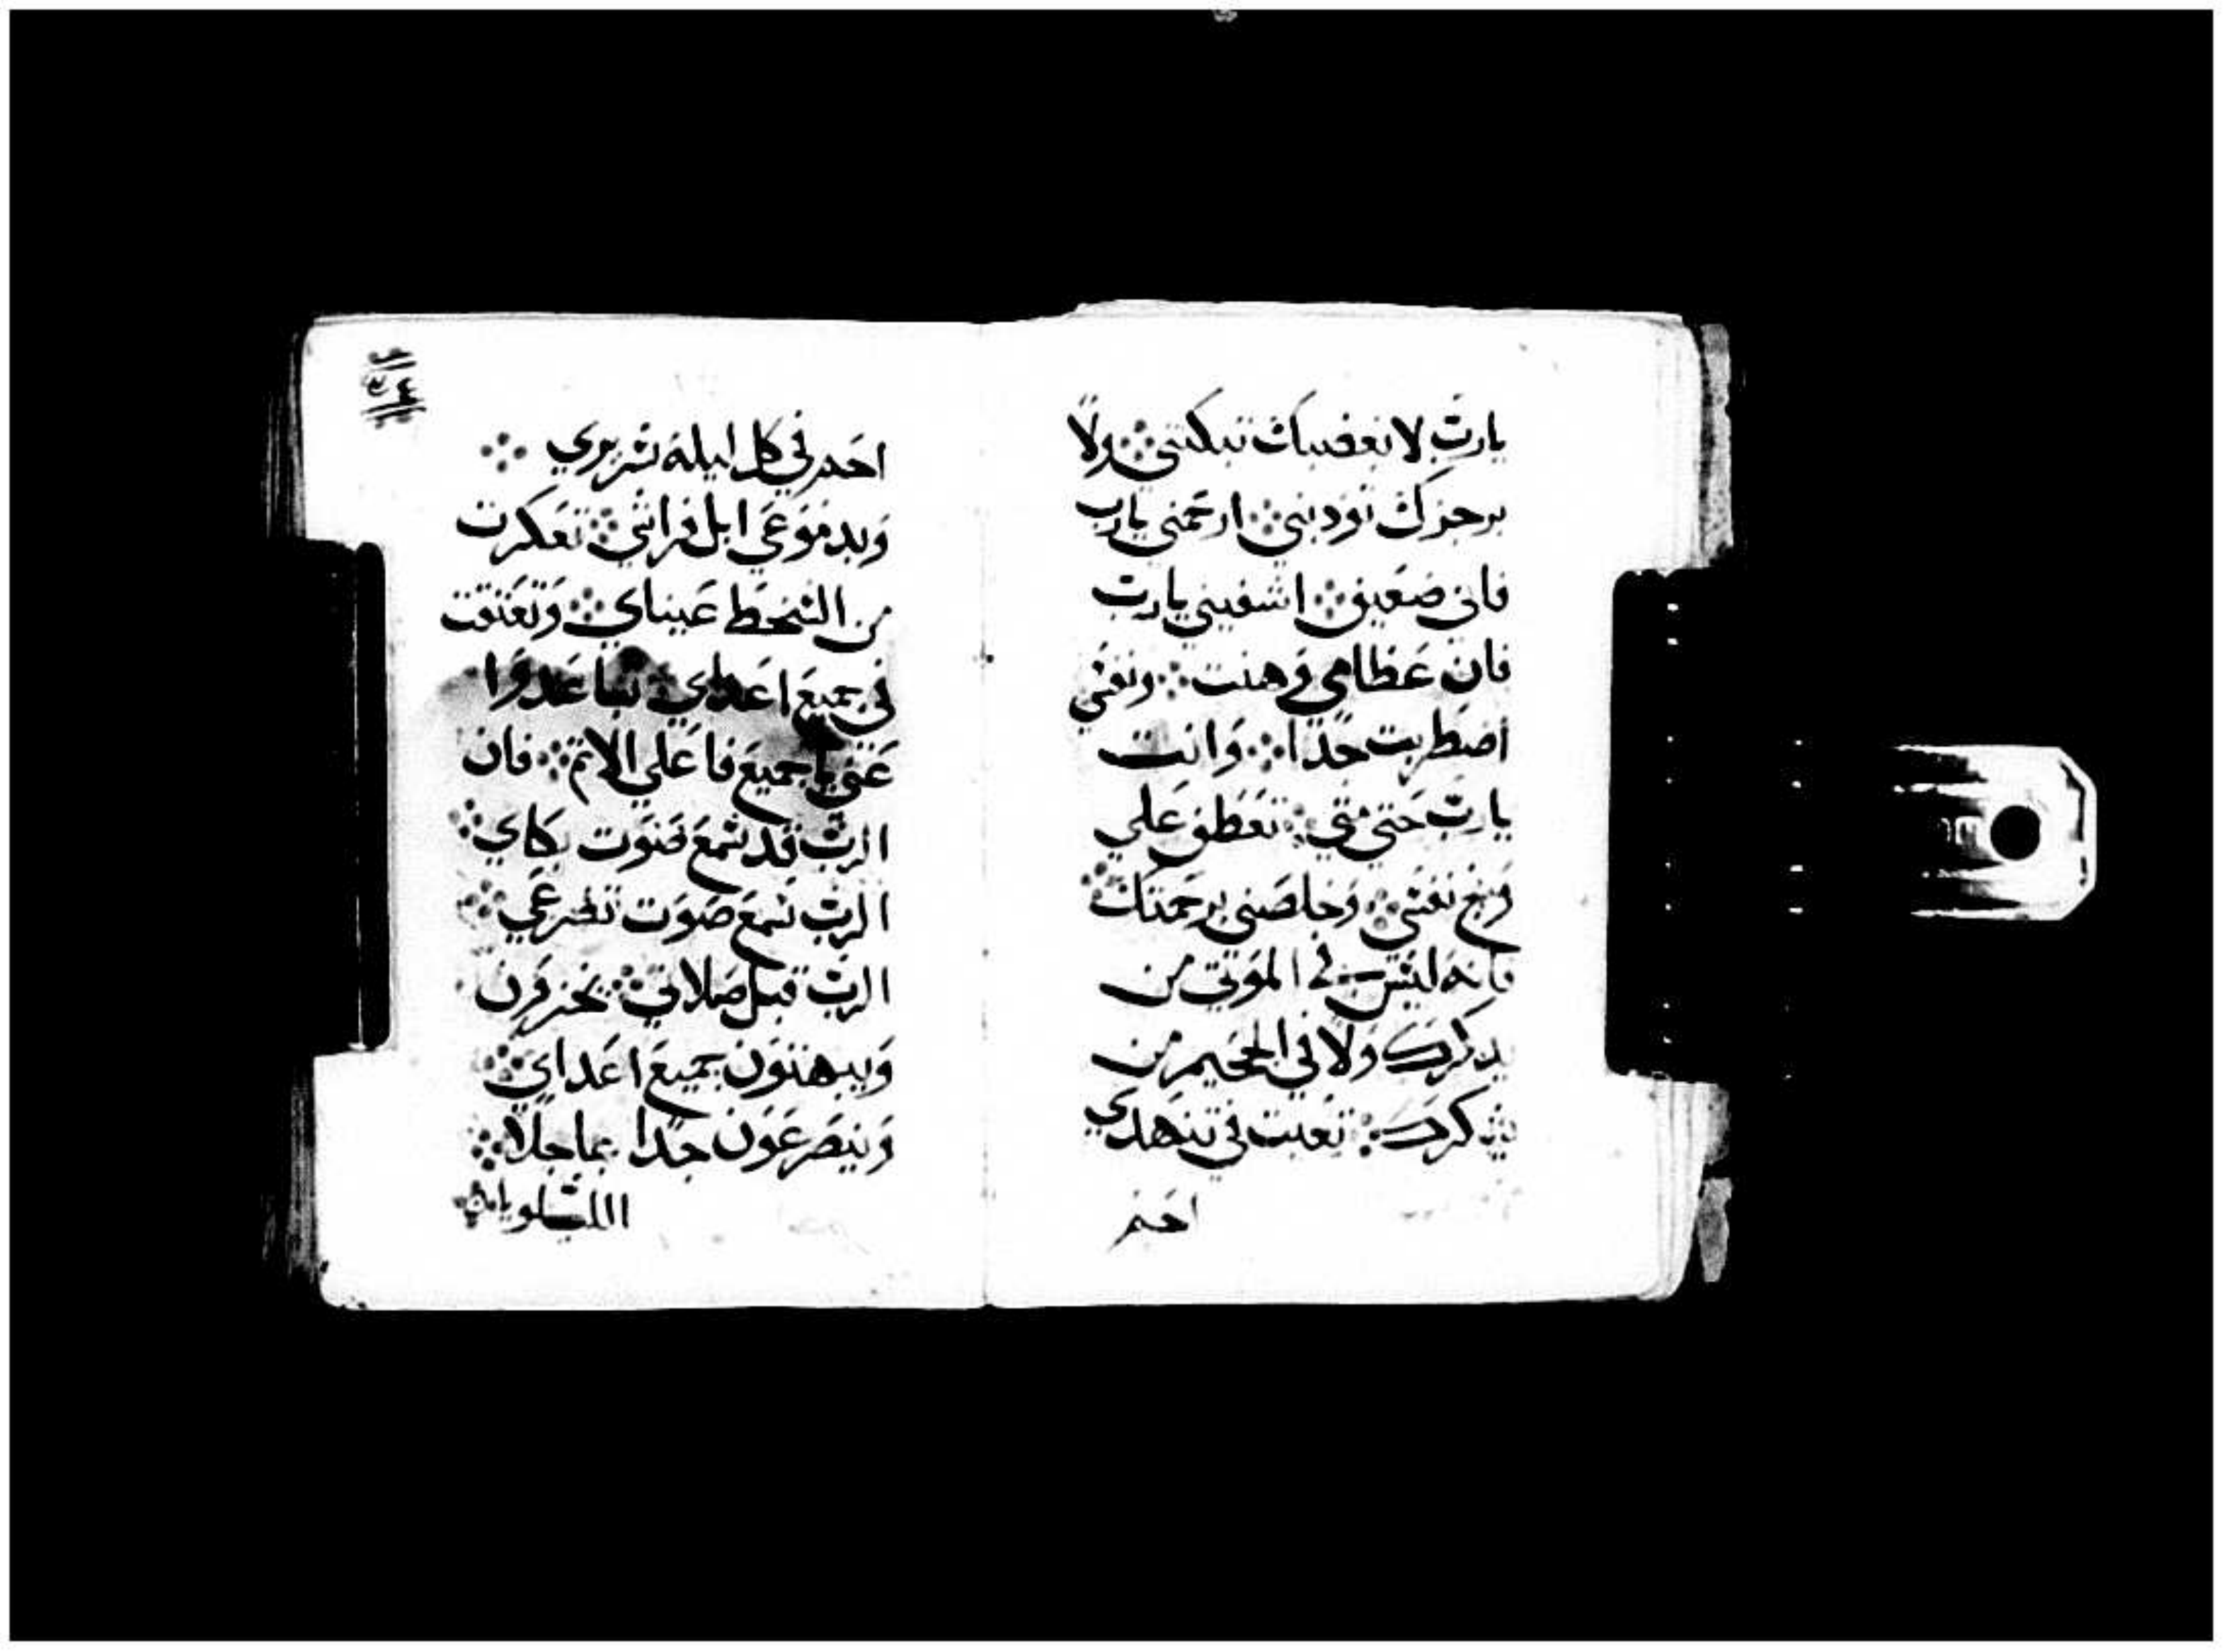 يارب لا بغضبك تبكتني ولا
برجزك تودبني ارحمني يارب
فاني ضعيف اشفيني يارب
فان عظامي وهنت ونفسي
اضطربت جدا وانت
يارب حتي متي تعطف علي
ونج نفسي وخلصني برحمتك
فانه ليس في الموتي من
يدكرك ولا في الجحيم من
يشكرك تعبت في تنهدي
احمم
٣٤
احمم في كل ليلة سريري
وبدموعي ابل فراشي تعكرت
من السخط عيناي وتعتقت
في جميع اعداي تباعدوا
عني يا جميع فاعلي الاثم فان
الرب قد سمع صوت بكاي
الرب سمع صوت تضرعي
الرب قبل صلاتي يخزون
ويبهتون جميع اعداي
وينصرعون جدا عاجلا
الليلويا